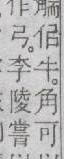 佀牛。角可
作弓。李陵嘗